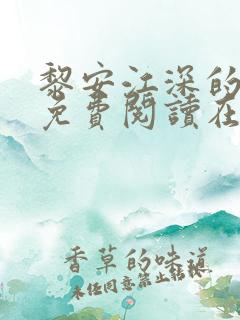 黎安江深的
免費閱讀在
香草的味道
未任同意禁止轉載